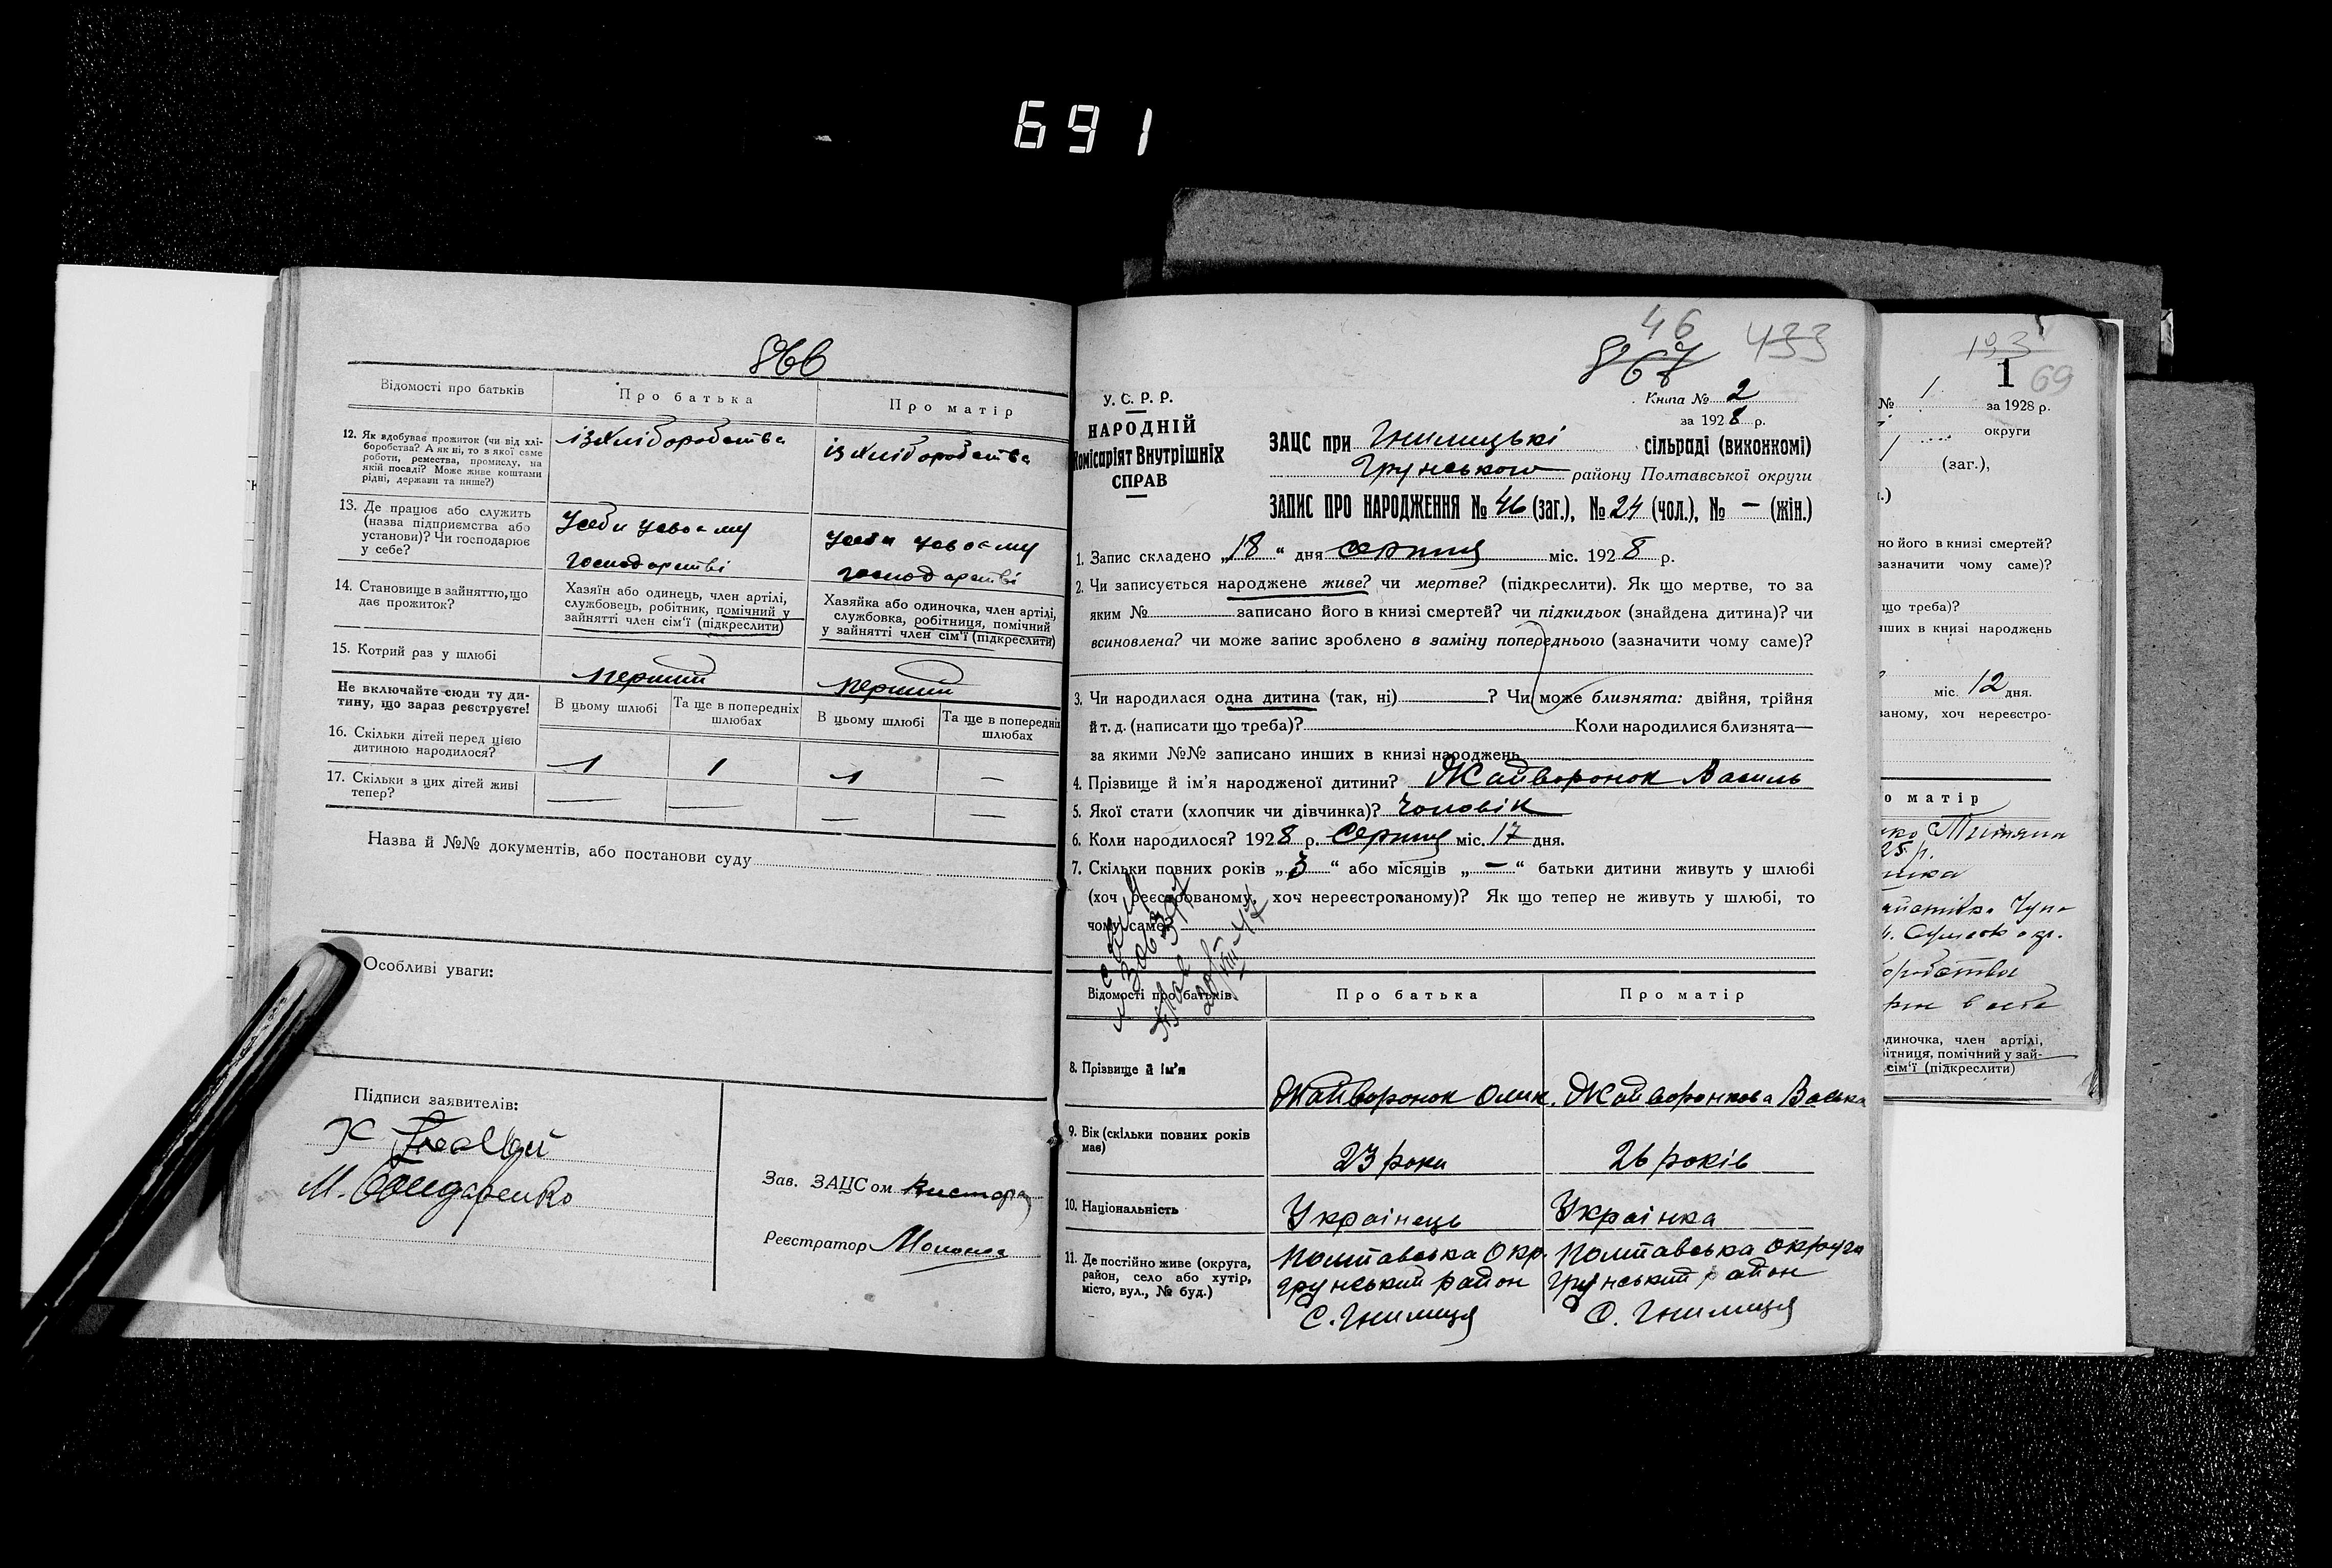 691
866
Відомості про батьків
Про батька
Про матір
12. Як вдобуває прожиток (чи від хлі-
боробства? А як ні, то з якої саме
роботи, ремества, промислу, на
якій посаді? Може живе коштами
рідні, держави та инше?)
із хліборобства
із хліборобства
13. Де працює або служить
(назва підприємства або
установи)? Чи господарює
у себе?
Усеби усвоєму
господарстві
Усеби усвоєму
господарстві
14. Становище в зайняттю, що
дає прожиток?
Хазяїн або одинець, член артілі,
службовець, робітник, помічний у
зайнятті член сім'ї (підкреслити)
Хазяйка або одиночка, член артілі,
службовка, робітниця, помічний
у зайнятті член сім'ї (підкреслити)
15. Котрий раз у шлюбі
перший
перший
Не включайте сюди ту ди-
тину, що зараз реєструєте!
В цьому шлюбі
Та ще в попередніх
шлюбах
В цьому шлюбі
Та ще в попередніх
шлюбах
16. Скільки дітей перед цією
дитиною народилося?
1
1
1
—
17. Скільки з цих дітей живі
тепер?
—
—
—
—
Назва й №№ документів, або постанови суду
Особливі уваги:
Підписи заявителів:
М. Бондаренко
Зав. ЗАЦСом
Реєстратор
46
433
867
Книга № 2
за 1928 р.
У. С. Р. Р.
НАРОДНІЙ
Комісаріят Внутрішніх
СПРАВ
ЗАЦС при Гнилицькі сільраді (виконкомі)
Грунського району Полтавської округи
ЗАПИС ПРО НАРОДЖЕННЯ № 46 (заг.), № 24 (чол.), № — (жін.)
1. Запис складено „18" дня серпня міс. 1928 р.
2. Чи записується народжене живе? чи мертве? (підкреслити). Як що мертве, то за
яким № записано його в книзі смертей? чи підкидьок (знайдена дитина)? чи
всиновлена? чи може запис зроблено в заміну попереднього (зазначити чому саме)?
3. Чи народилася одна дитина (так, ні) ? Чи може близнята: двійня, трійня
й т. д. (написати що треба)? Коли народилися близнята—
за якими №№ записано инших в книзі народжень
4. Прізвище й ім'я народженої дитини? Жайворонок Василь
5. Якої стати (хлопчик чи дівчинка)? Чоловік
6. Коли народилося? 1928 р. Серпня міс. 17 дня.
7. Скільки повних років „3" або місяців „—" батьки дитини живуть у шлюбі
(хоч реєстрованому, хоч нереєстрованому)? Як що тепер не живуть у шлюбі, то
чому саме?
Відомості про батьків
Про батька
Про матір
8. Прізвище й ім'я
Жайворонок Олик.
Жайворонкова Васька
9. Вік (скільки повних років
має)
23 роки
26 років
10. Національність
Українець
Українка
11. Де постійно живе (округа,
район, село або хутір,
місто, вул., № буд.)
Полтавська Окр.
Грунський район
С. Гнилиця
Полтавська округа
Грунський район
С. Гнилиця
193
1
69
№ 1 за 1928 р.
округи
(заг.),
но його в книзі смертей?
зазначити чому саме)?
що треба)?
нших в книзі народжень
міс. 12 дня.
ваному, хоч нереєстро-
о матір
25 р.
одиночка, член артілі,
бітниця, помічний у зай-
сім'ї (підкреслити)